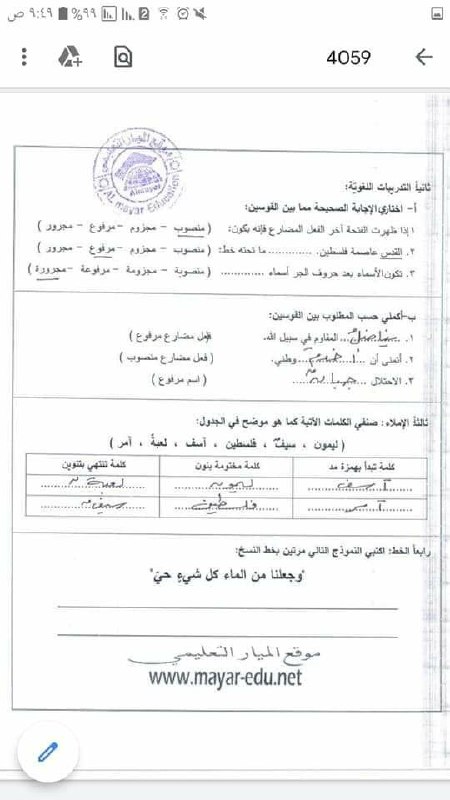 ٩:٤٩ ص
%٩٩
2
4059
موقع الميار التعليمي
Almayar
AL mayar Education
ثانياً التدريبات اللغوية:
أ- اختاري الإجابة الصحيحة مما بين القوسين:
١. إذا ظهرت الفتحة آخر الفعل المضارع فإنه يكون: ( منصوب – مجزوم – مرفوع – مجرور )
٢. القدس عاصمة فلسطين. .............. ما تحته خط: ( منصوب – مجزوم – مرفوع – مجرور )
٣. تكون الأسماء بعد حروف الجر أسماء ............ ( منصوبة – مجزومة – مرفوعة – مجرورة )
ب-أكملي حسب المطلوب بين القوسين:
١. يناضل المقاوم في سبيل الله. ( فعل مضارع مرفوع )
٢. أتمنى أن ... وطني. ( فعل مضارع منصوب )
٣. الاحتلال ... ( اسم مرفوع )
ثالثاً الإملاء: صنفي الكلمات الآتية كما هو موضح في الجدول:
( ليمون ، سيفٌ ، فلسطين ، آسف ، لعبةٌ ، آمر )
كلمة تبدأ بهمزة مد كلمة مختومة بنون كلمة تنتهي بتنوين
آسف ليمون لعبةٌ
آمر فلسطين سيفٌ
رابعاً الخط: اكتبي النموذج التالي مرتين بخط النسخ:
"وجعلنا من الماء كل شيءٍ حيّ"
موقع الميار التعليمي
www.mayar-edu.net